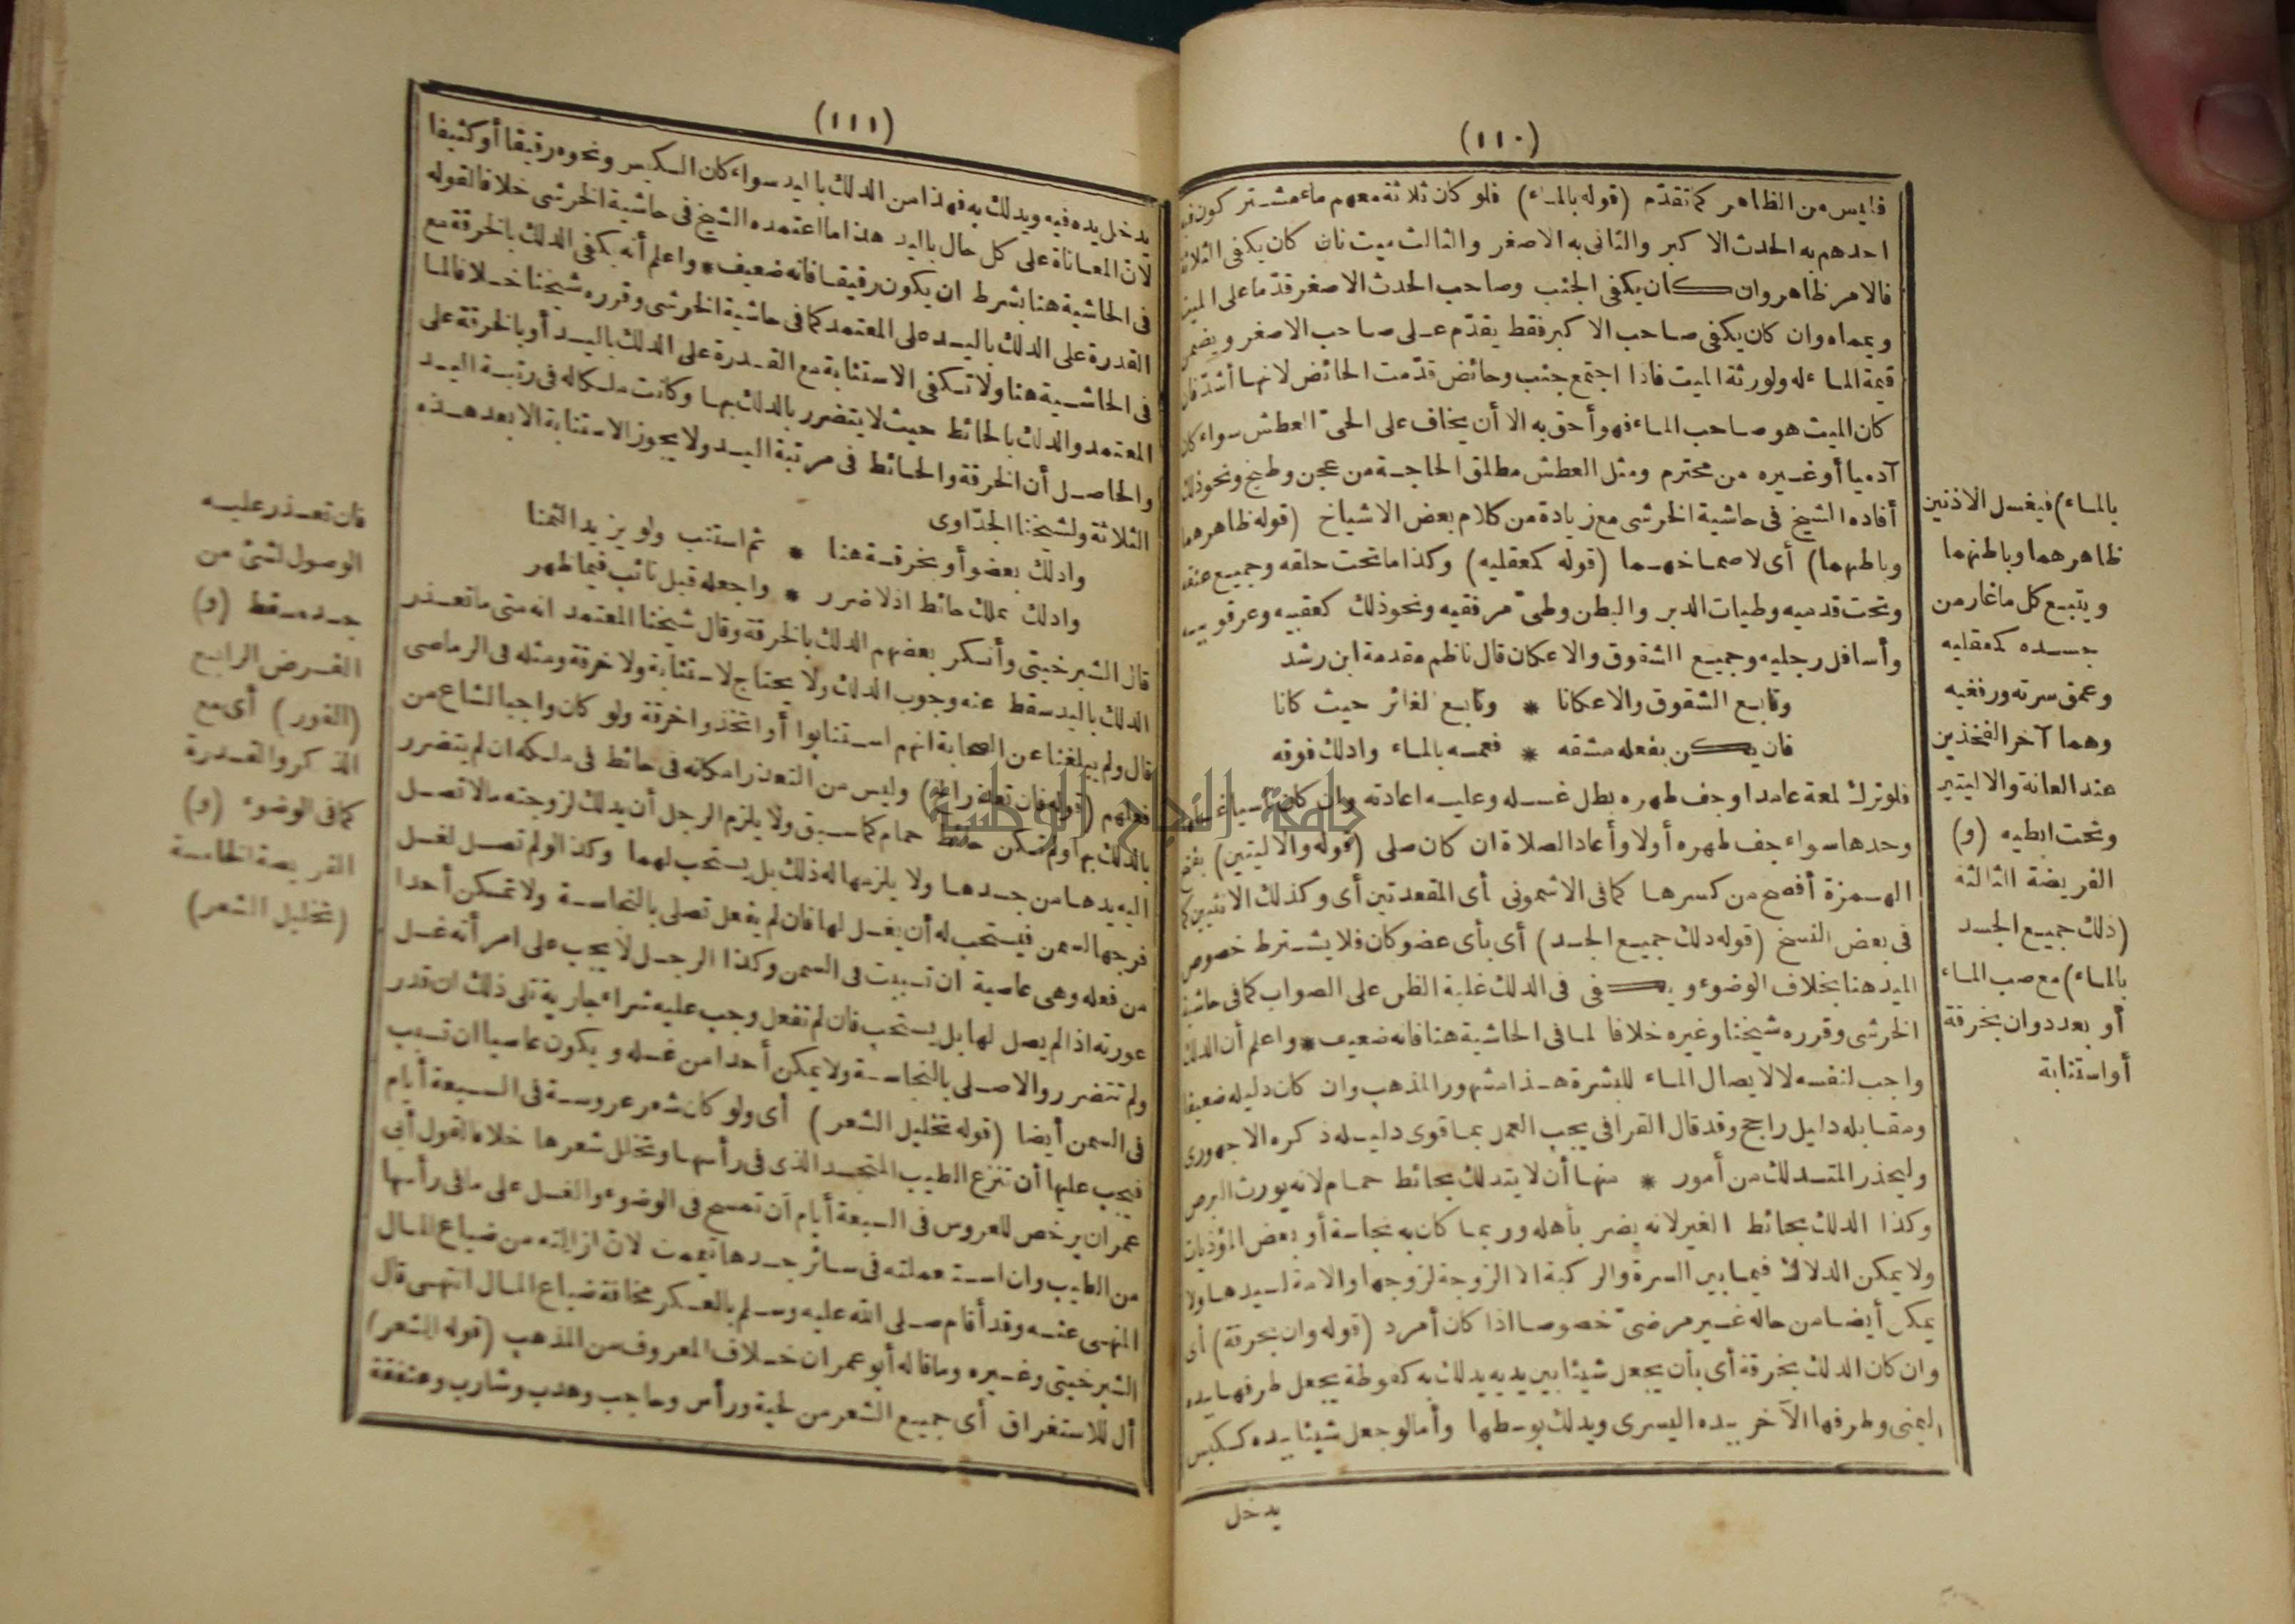 (١١٠)
فليس من الظاهر كما تقدّم (قوله بالماء) فلو كان ثلاثة معهم ماء مشتركون فيه
احدهم به الحدث الاكبر والثانى به الاصغر والثالث ميت فان كان يكفى الثلاثة
فالامر ظاهر وان كان يكفى الجنب وصاحب الحدث الاصغر قدّما على الميت
ويمماه وان كان يكفى صاحب الاكبر فقط يقدّم على صاحب الاصغر ويضمن
قيمة الماء له ولورثة الميت فاذا اجتمع جنب وحائض قدّمت الحائض لانها أشدّ فان
كان الميت هو صاحب الماء فهو أحق به الا أن يخاف على الحىّ العطش سواء كان
آدميا أو غيره من محترم ومثل العطش مطلق الحاجة من عجن وطبخ ونحو ذلك
أفاده الشيخ فى حاشية الخرشى مع زيادة من كلام بعض الاشياخ (قوله ظاهرهما
وباطنهما) أى لا صماخهما (قوله كعقليه) وكذا ما تحت حلقه وجميع عنقه
وتحت قدميه وطيات الدبر والبطن وطىّ مرفقيه ونحو ذلك كعقبيه وعرقوبيه
وأسافل رجليه وجميع الشقوق والاعكان قال ناظم مقدمة ابن رشد
وتابع الشقوق والاعكانا * وتابع الغائر حيث كانا
فان يكن بفعله مشقه * فعمه بالماء وادلك فوقه
فلو ترك لمعة عامدا وجف طهره بطل غسله وعليه اعادته وان كان ناسيا غسلها
وحدها سواء جف طهره أولا وأعاد الصلاة ان كان صلى (قوله والاليتين) بفتح
الهمزة أفصح من كسرها كما فى الاشمونى أى المقعدتين أى وكذلك الانثيين كما
فى بعض النسخ (قوله دلك جميع الجسد) أى بأى عضو كان فلا يشترط خصوص
اليد هنا بخلاف الوضوء ويكفى فى الدلك غلبة الظن على الصواب كما فى حاشية
الخرشى وقرره شيخنا وغيره خلافا لما فى الحاشية هنا فانه ضعيف * واعلم أن الدلك
واجب لنفسه لا لايصال الماء للبشرة هذا مشهور المذهب وان كان دليله ضعيفا
ومقابله دليل راجح وقد قال القرافى يجب العمل بما قوى دليله ذكره الاجهورى
وليحذر المتدلك من أمور * منها أن لا يتدلك بحائط حمام لانه يورث البرص
وكذا الدلك بحائط الغير لانه يضر بأهله وربما كان به نجاسة أو بعض المؤذيات
ولا يمكن الدلاك فيما بين السرة والركبة الا الزوجة لزوجها والامة لسيدها ولا
يمكن أيضا من حاله غير مرضىّ خصوصا اذا كان أمرد (قوله وان بخرقة) أى
وان كان الدلك بخرقة أى بأن يجعل شيئا بين يديه يدلك به كفوطة يجعل طرفها بيده
اليمنى وطرفها الآخر بيده اليسرى ويدلك بوسطها وأما لو جعل شيئا بيده ككيس
يدخل
بالماء) فيغسل الاذنين
ظاهرهما وباطنهما
ويتبع كل ما غار من
جسده كعقليه
وعمق سرته ورفغيه
وهما آخر الفخذين
عند العانة والاليتين
وتحت ابطيه (و)
الفريضة الثالثة
(دلك جميع الجسد
بالماء) مع صب الماء
أو بعده وان بخرقة
أو استنابة
(١١١)
يدخل يده فيه ويدلك به فهذا من الدلك باليد سواء كان الكيس ونحوه رقيقا أو كثيفا
لانّ المعاناة على كل حال باليد هذا ما اعتمده الشيخ فى حاشية الخرشى خلافا لقوله
فى الحاشية هنا بشرط ان يكون رقيقا فانه ضعيف * واعلم أنه يكفى الدلك بالخرقة مع
القدرة على الدلك باليد على المعتمد كما فى حاشية الخرشى وقرره شيخنا خلافا لما
فى الحاشية هنا ولا تكفى الاستنابة مع القدرة على الدلك باليد أو بالخرقة على
المعتمد والدلك بالحائط حيث لا يتضرر بالدلك بها وكانت ملكا له فى رتبة اليد
والحاصل أن الخرقة والحائط فى مرتبة اليد ولا يجوز الاستنابة الا بعد هذه
الثلاثة ولشيخنا الجدّاوى
وادلك بعضو أو بخرقة هنا * ثم استنب ولو يزيد الثمنا
وادلك بملك حائط اذ لا ضرر * واجعله قبل نائب فيما ظهر
قال الشبرخيتى وأنكر بعضهم الدلك بالخرقة وقال شيخنا المعتمد انه متى ما تعذر
الدلك باليد سقط عنه وجوب الدلك ولا يحتاج لاستنابة ولا خرقة ومثله فى الرماصى
قال ولم يبلغنا عن الصحابة انهم استنابوا أو اتخذوا خرقة ولو كان واجبا لشاع من
فعلهم (قوله فان تعذر الخ) وليس من التعذر امكانه فى حائط فى ملكه ان لم يتضرر
بالدلك بها ولم تكن حائط حمام كما سبق ولا يلزم الرجل أن يدلك لزوجته ما لا تصل
اليه يدها من جسدها ولا يلزمها له ذلك بل يستحب لهما وكذا لو لم تصل لغسل
فرجها لسمن فيستحب له أن يغسل لها فان لم يفعل تصلى بالنجاسة ولا تمكن أحدا
من فعله وهى عاصية ان تسببت فى السمن وكذا الرجل لا يجب على امرأته غسل
عورته اذا لم يصل لها بل يستحب فان لم تفعل وجب عليه شراء جارية تلى ذلك ان قدر
ولم تتضرر والا صلى بالنجاسة ولا يمكن أحدا من غسله ويكون عاصيا ان تسبب
فى السمن أيضا (قوله تخليل الشعر) أى ولو كان شعر عروسة فى السبعة أيام
فيجب عليها أن تنزع الطيب المتجسد الذى فى رأسها وتخلل شعرها خلافا لقول أبى
عمران يرخص للعروس فى السبعة أيام أن تمسح فى الوضوء والغسل على ما فى رأسها
من الطيب وان استعملته فى سائر جسدها تيممت لانّ ازالته من ضياع المال
المنهى عنه وقد أقام صلى الله عليه وسلم بالعسكر مخافة ضياع المال انتهى قال
الشبرخيتى وغيره وما قاله أبو عمران خلاف المعروف من المذهب (قوله الشعر)
أل للاستغراق أى جميع الشعر من لحية ورأس وحاجب وهدب وشارب وعنفقة
فان تعذر عليه
الوصول لشئ من
جسده سقط (و)
الفرض الرابع
(الفور) أى مع
الذكر والقدرة
كما فى الوضوء (و)
الفريضة الخامسة
(تخليل الشعر)
جامعة النجاح الوطنية